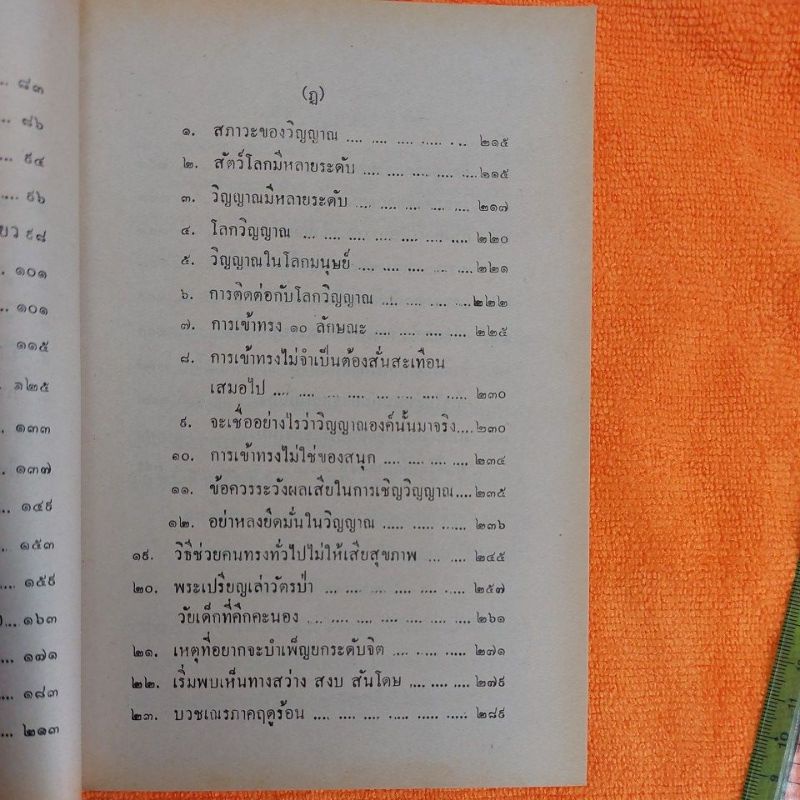 ... ๘๓
... ๘๖
... ๙๔
.... ๙๖
ยว ๙๘
. ๑๐๑
... ๑๐๑
. ๑๑๕
. ๑๒๕
. ๑๓๓
. ๑๓๗
... ๑๔๙
... ๑๕๓
... ๑๕๙
... ๑๖๓
... ๑๗๑
.... ๑๘๓
... ๒๑๓
(ฏ)
๑. สภาวะของวิญญาณ .... .... .... ..... .. ๒๑๕
๒. สัตว์โลกมีหลายระดับ .... .... .... .... ....๒๑๕
๓. วิญญาณมีหลายระดับ .... .... .... .... .... ๒๑๗
๔. โลกวิญญาณ ... .... .... .... .... .... .... ๒๒๐
๕. วิญญาณในโลกมนุษย์ .... .... .... .... .... ๒๒๑
๖. การติดต่อกับโลกวิญญาณ .... .... .... .... ....๒๒๒
๗. การเข้าทรง ๑๐ ลักษณะ .... .... .... .... ๒๒๕
๘. การเข้าทรงไม่จำเป็นต้องสั่นสะเทือน
เสมอไป .... .... .... .... .... .... .... ๒๓๐
๙. จะเชื่ออย่างไรว่าวิญญาณองค์นั้นมาจริง....๒๓๐
๑๐. การเข้าทรงไม่ใช่ของสนุก .... .... .... .... ๒๓๔
๑๑. ข้อควรระวังผลเสียในการเชิญวิญญาณ....๒๓๕
๑๒. อย่าหลงยึดมั่นในวิญญาณ ..... ..... .... .... ๒๓๖
๑๙. วิธีช่วยคนทรงทั่วไปไม่ให้เสียสุขภาพ ... .... ๒๔๕
๒๐. พระเปรียญเล่าวัตรป่า .... .... .... .... .... .... ๒๕๗
วัยเด็กที่คึกคะนอง .... .... .... .... .... .... .... ๒๖๑
๒๑. เหตุที่อยากจะบำเพ็ญยกระดับจิต .... .... .... ๒๗๑
๒๒. เริ่มพบเห็นทางสว่าง สงบ สันโดษ .... .... .... ๒๗๙
๒๓. บวชเณรภาคฤดูร้อน .... .... .... ..... ..... ..... ๒๘๙
8 9 10 11